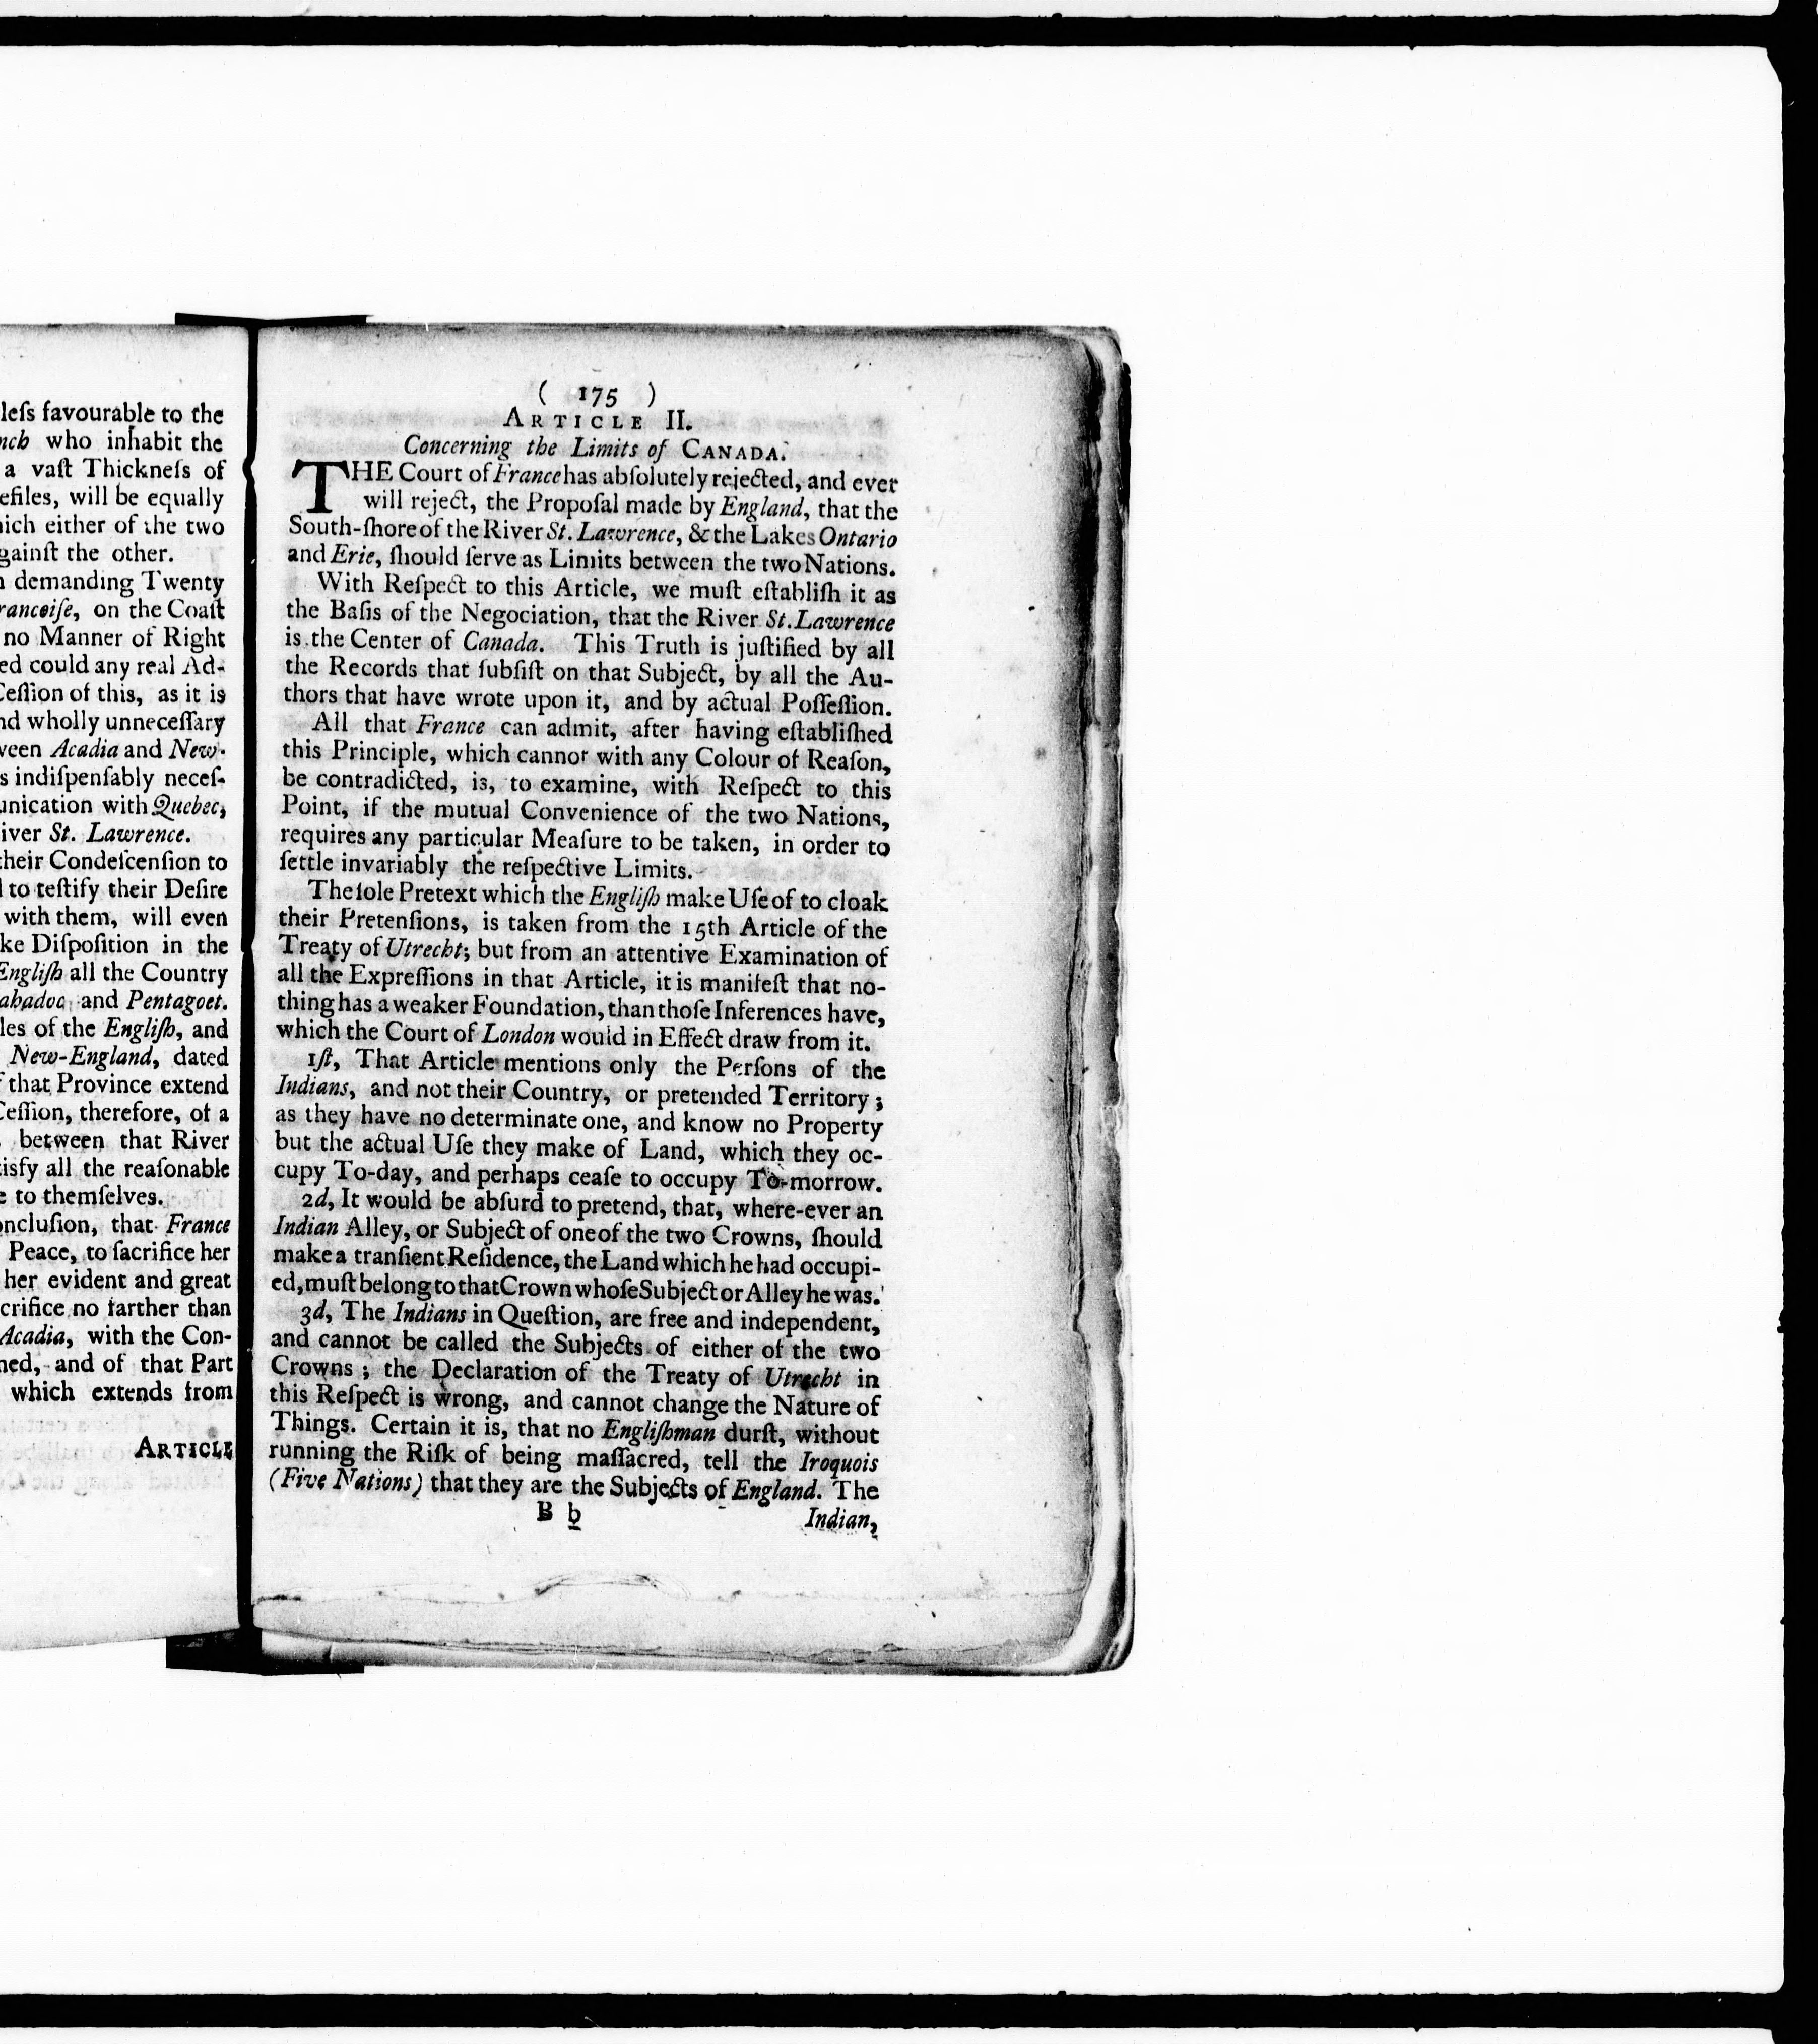 less favourable to the
who inhabit the
a vast Thickness of
will be equally
either of the two
the other.
demanding Twenty
on the Coast
no Manner of Right
could any real Ad-
of this, as it is
wholly unnecessary
Acadia and New-
indispensably neces-
with Quebec,
St. Lawrence.
their Condescension to
to testify their Desire
with them, will even
Disposition in the
English all the Country
and Pentagoet.
of the English, and
New-England, dated
that Province extend
therefore, of a
between that River
all the reasonable
to themselves.
that France
Peace, to sacrifice her
her evident and great
no farther than
Acadia, with the Con-
and of that Part
which extends from
ARTICLE
( 175 )
ARTICLE II.
Concerning the Limits of CANADA.
THE Court of France has absolutely rejected, and ever
will reject, the Proposal made by England, that the
South-shore of the River St. Lawrence, & the Lakes Ontario
and Erie, should serve as Limits between the two Nations.
With Respect to this Article, we must establish it as
the Basis of the Negociation, that the River St. Lawrence
is the Center of Canada. This Truth is justified by all
the Records that subsist on that Subject, by all the Au-
thors that have wrote upon it, and by actual Possession.
All that France can admit, after having established
this Principle, which cannot with any Colour of Reason,
be contradicted, is, to examine, with Respect to this
Point, if the mutual Convenience of the two Nations,
requires any particular Measure to be taken, in order to
settle invariably the respective Limits.
The sole Pretext which the English make Use of to cloak
their Pretensions, is taken from the 15th Article of the
Treaty of Utrecht; but from an attentive Examination of
all the Expressions in that Article, it is manifest that no-
thing has a weaker Foundation, than those Inferences have,
which the Court of London would in Effect draw from it.
1st, That Article mentions only the Persons of the
Indians, and not their Country, or pretended Territory;
as they have no determinate one, and know no Property
but the actual Use they make of Land, which they oc-
cupy To-day, and perhaps cease to occupy To-morrow.
2d, It would be absurd to pretend, that, where-ever an
Indian Alley, or Subject of one of the two Crowns, should
make a transient Residence, the Land which he had occupi-
ed, must belong to that Crown whose Subject or Alley he was.
3d, The Indians in Question, are free and independent,
and cannot be called the Subjects of either of the two
Crowns; the Declaration of the Treaty of Utrecht in
this Respect is wrong, and cannot change the Nature of
Things. Certain it is, that no Englishman durst, without
running the Risk of being massacred, tell the Iroquois
(Five Nations) that they are the Subjects of England. The
B b
Indian,